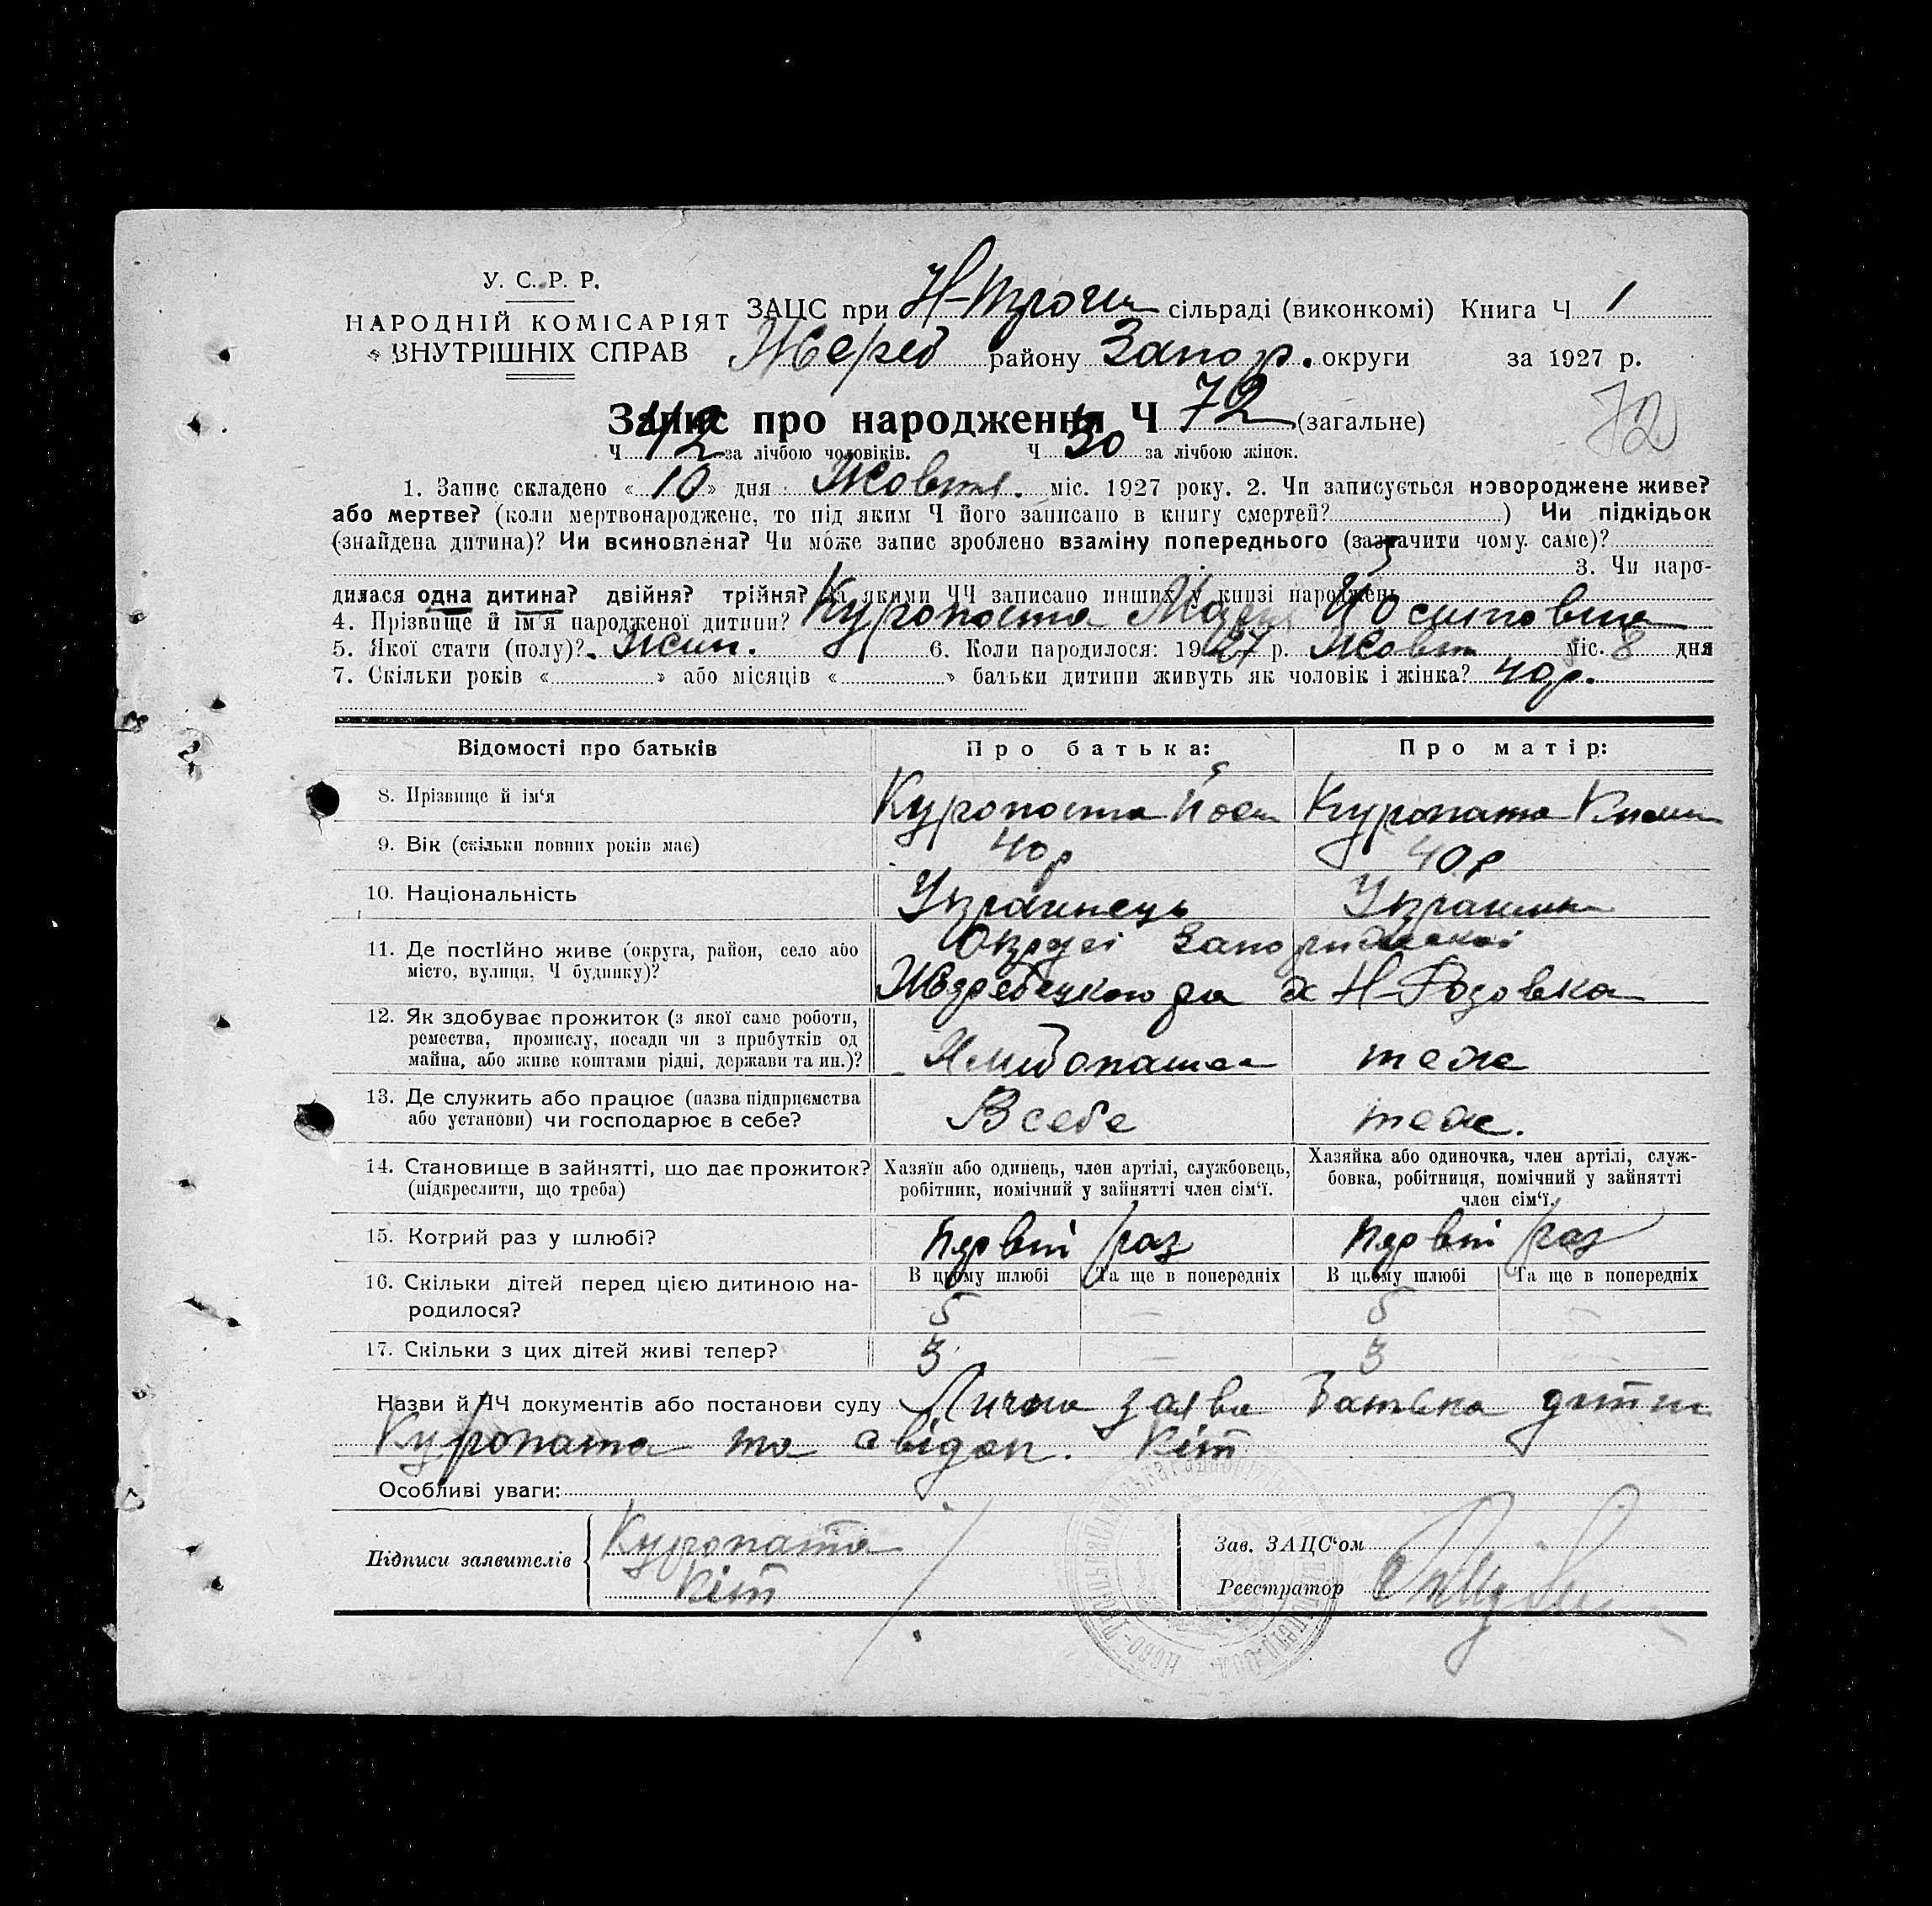 У. С. Р. Р.
НАРОДНІЙ КОМІСАРІЯТ
ВНУТРІШНІХ СПРАВ
ЗАЦС при Н-Троїц сільраді (виконкомі) Книга Ч 1
Жереб району Запор. округи за 1927 р.
Запис про народження Ч 72 (загальне)
72
Ч 42 за лічбою чоловіків. Ч 30 за лічбою жінок.
1. Запис складено « 10 » дня Жовтня. міс. 1927 року. 2. Чи записується новороджене живе?
або мертве? (коли мертвонароджене, то під яким Ч його записано в книгу смертей? ) Чи підкідьок
(знайдена дитина)? Чи всиновлена? Чи може запис зроблено взаміну попереднього (зазначити чому саме)?
3. Чи наро-
дилася одна дитина? двійня? трійня? За якими ЧЧ записано инших у книзі народжень
4. Прізвище й ім'я народженої дитини? Куропата Марія Йосиповна
5. Якої стати (полу)? Жин. 6. Коли народилося: 1927 р. Жовтн міс. 8 дня
7. Скільки років « » або місяців « » батьки дитини живуть як чоловік і жінка? 40 р.
Відомості про батьків Про батька: Про матір:
8. Прізвище й ім'я Куропата Йосип Куропата
9. Вік (скільки повних років має) 40 р 40 р
10. Національність Українець Украинка
11. Де постійно живе (округа, район, село або Округі Запорижскоі
місто, вулиця, Ч будинку)? Жеребецкого ра х Н-Розовка
12. Як здобуває прожиток (з якої саме роботи,
ремества, промислу, посади чи з прибутків од
майна, або живе коштами рідні, держави та ин.)? Хлибопашец теже
13. Де служить або працює (назва підприємства
або установи) чи господарює в себе? В себе теже.
14. Становище в зайнятті, що дає прожиток? Хазяїн або одинець, член артілі, службовець, Хазяйка або одиночка, член артілі, служ-
(підкреслити, що треба) робітник, помічний у зайнятті член сім'ї. бовка, робітниця, помічний у зайнятті
член сім'ї.
15. Котрий раз у шлюбі? Первий раз Первий раз
16. Скільки дітей перед цією дитиною на- В цьому шлюбі Та ще в попередніх В цьому шлюбі Та ще в попередніх
родилося? 5 — 5 —
17. Скільки з цих дітей живі тепер? 3 — 3 —
Назви й ЧЧ документів або постанови суду Лична заява Батька дитини
Куропата та свідок. Кіт
Особливі уваги:
Підписи заявителів Куропата
Кіт
Зав. ЗАЦС'ом
Реєстратор